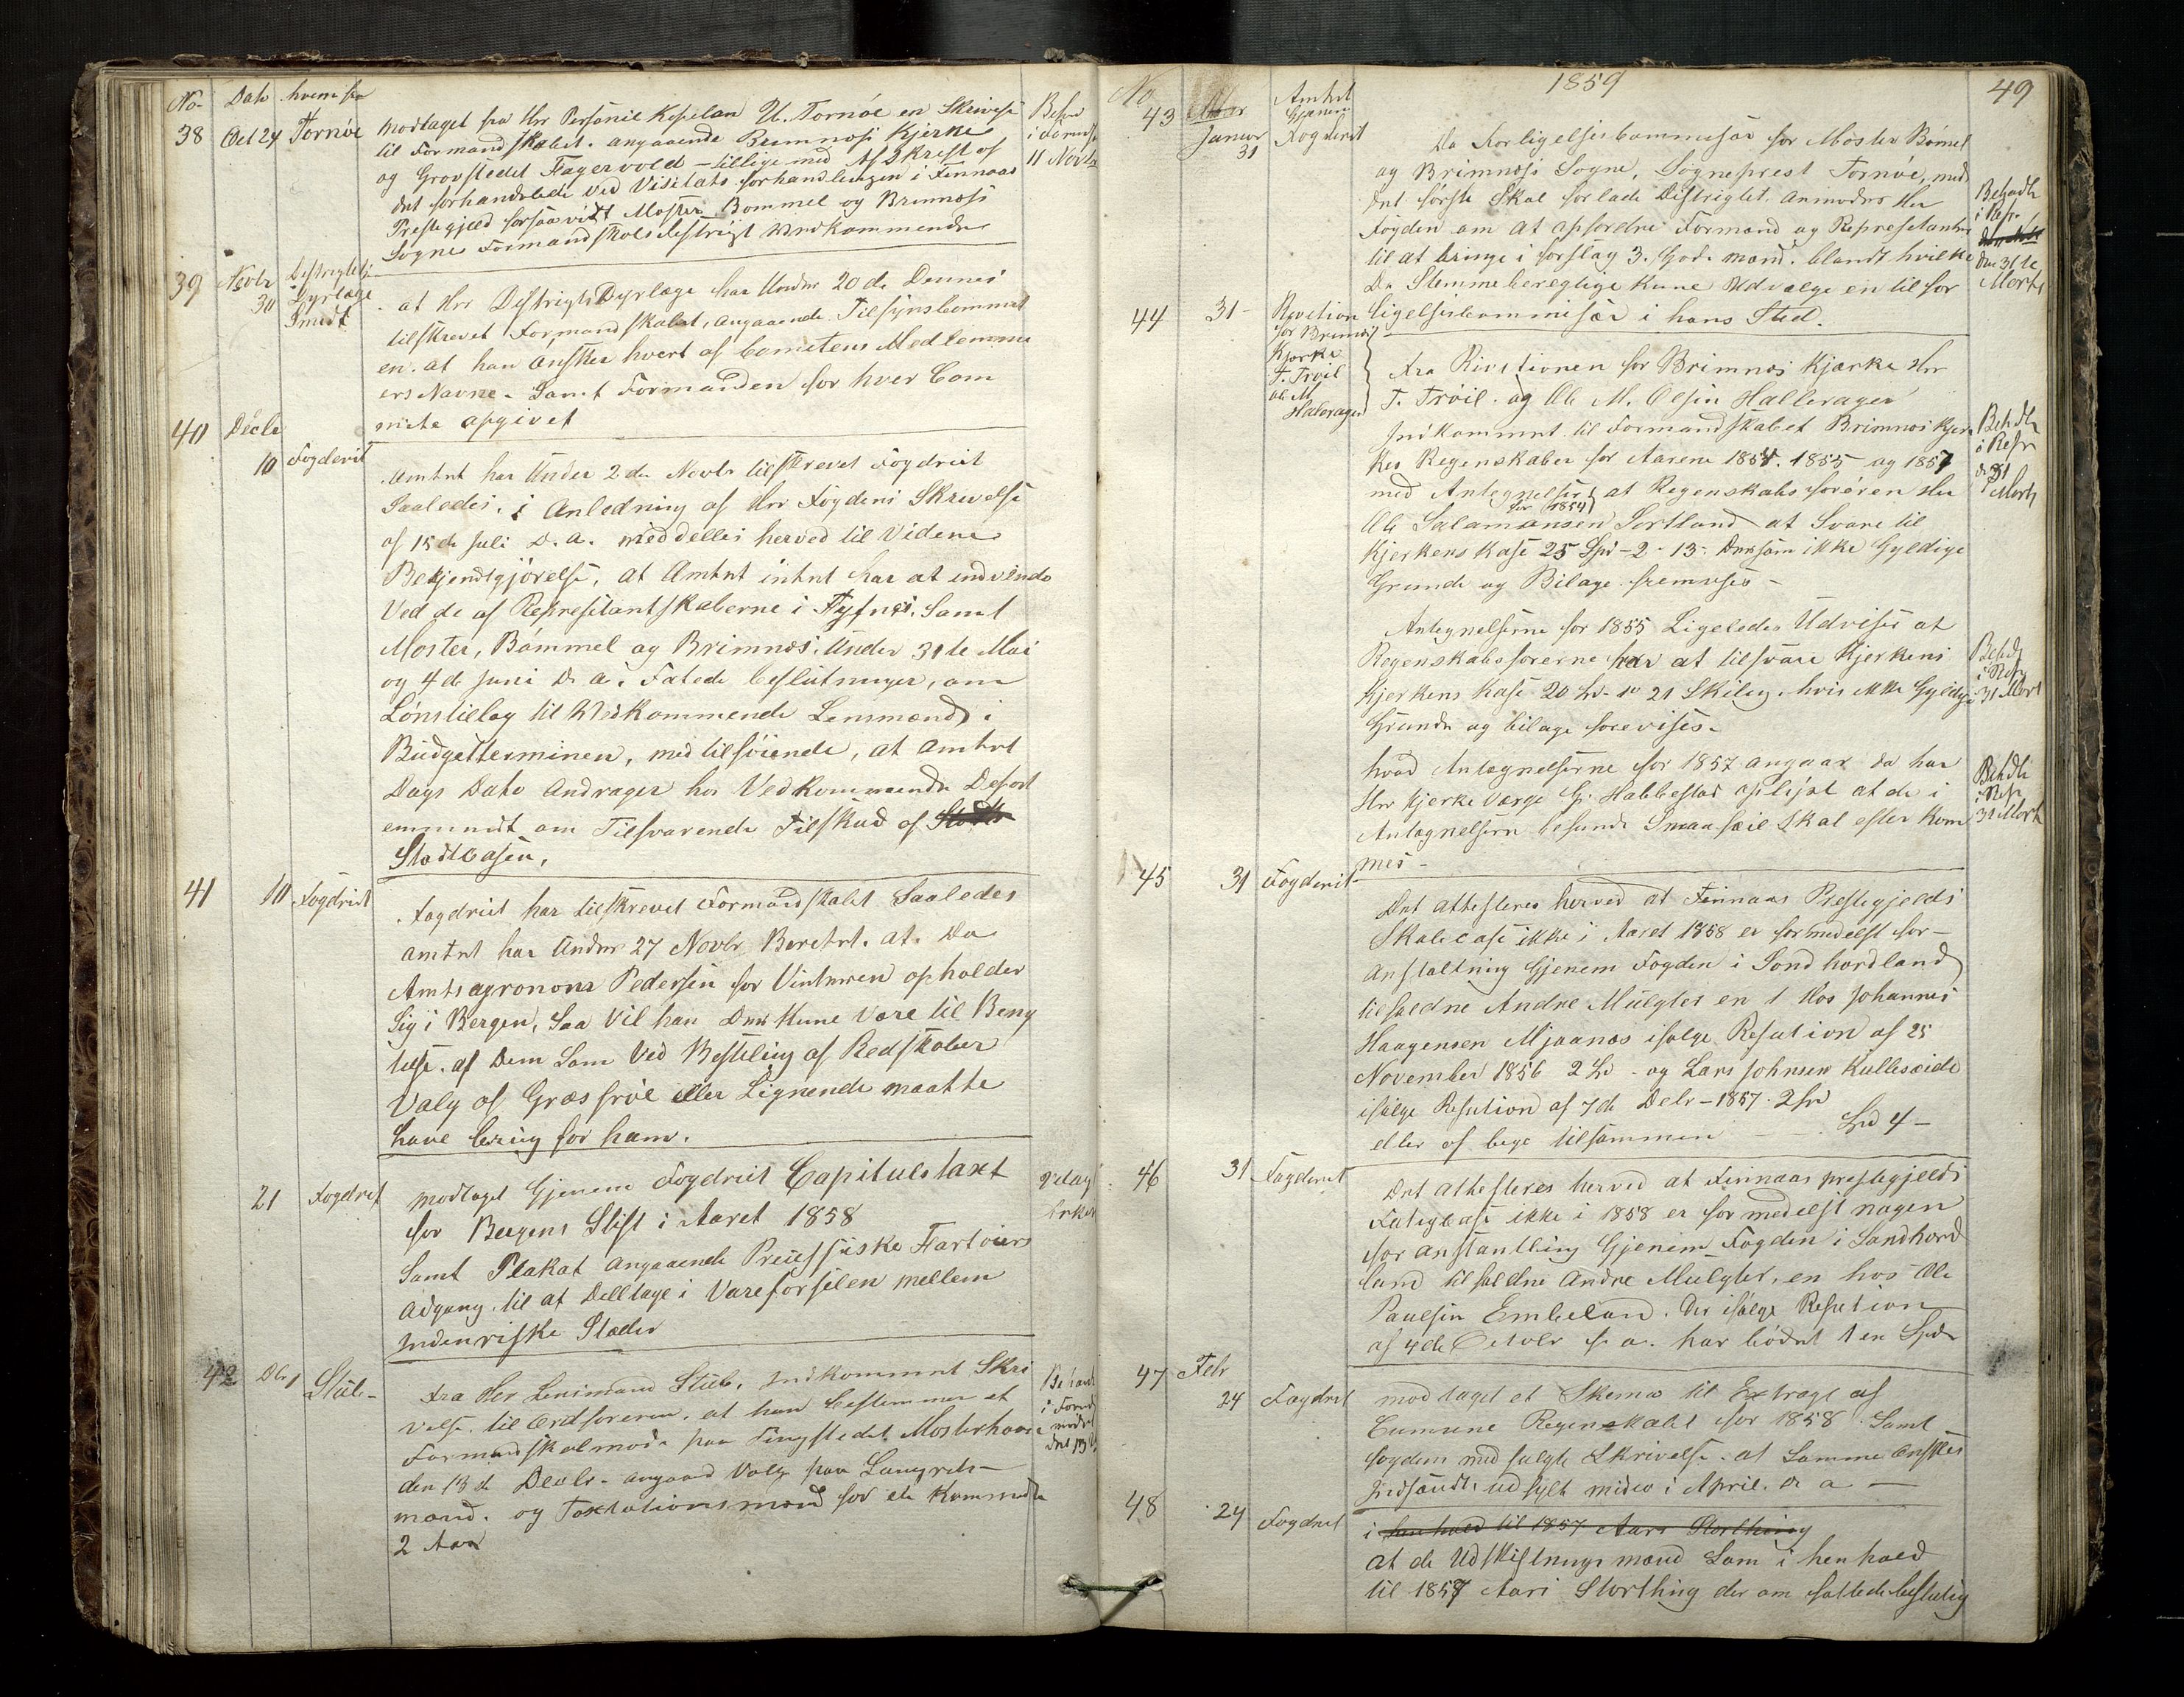 No. Dato hvem fra
38 Oct 24 Tornöe modtaget fra Hrr Personel Kapelan U. Tornöe en Skrivese
til Formandskabet. angaaende Bremnæss Kjerke
og Gravstedet Fagervold - tillige med Afskreft af
det forhandlede ved Visitats forhandlingen i Finnaas
Prestegjeld forsaavidt Moster Bommel og Bremnæss
Sogne Formandskabsdistrigt vedkommende
Behan
i Formsk
11 Novbr
39 Novbr 30 Distrigts Dyrlæge Smidt
at Hrr Distrigts Dyrlæge har Under 20de Dennes
tilskrevet Formandskabet, angaaende Tilsynscommit
en. at han önsker hvert af Cometens Medlemmer
ers Navne - Samt Formanden for hver Com
mite opgivet
40 Decbr 10 Fogderit
Amtet har Under 2den Novbr tilskrevet Fogdriet
Saaledes. i Anledning af Hrr Fogdens Skrevelse
af 15de Juli D. A. meddelles herved til Videne
Bekjendtgjörelse, at Amtet intet har at indvende
Ved de af Represetantskaberne i Fyfnes, Samt
Moster, Bömmel og Brimnæs. Under 31te Mai
og 4de Juni D. a. Fatede beslutninger, om
Lönstillæg til Vedkommende Lensmænd i
Budgetterminen, med tilföiende, at Amtet
Dags Dato Andrager hos Vedkommende Depart
ementet om Tilsvarende Tilskud af
Stadtcasen,
41 10 Fogdriet
Fogdriet har tilskrevet Formandskabet Saaledes
Amtet har Under 27 Novbr Beretet. at. Da
Amtsagronom Pedersen for Vinteren opholder
Sig i Bergen, Saa Vil han Der Kune Være til Beny
telse. af Dem Som Ved Bestilling af Redskaber
Valg af Græsfröe eller Lignende maatte
have brug for ham.
21 Fogdriet
modtaget Gjenem Fogdriet Capitulstaxt
for Bergens Stift i Aaret 1858
Samt Plakat angaaende Preussiske Fartöiers
Adgang. til at Delltage i Vareförselen mellem
Indenriske Stæder
42 Dbr 1 Stüb-
Fra Hrr Lensmand Stüb, indkommet Skri
velse til Ordföreren, at han bestemmer et
Formandskabsmöde paa Tingstedet Mosterhavn
den 13de Decbr - angaaend Valg paa Laugrets-
mænd. og Taxtationsmænd for de Kommende
2 Aar
1859
49
No.
43 Januar 31 Amtet Gjenem Fogderiet
Da Forligelsescommissær for Moster Bömel
og Brimnæss Sogne, Sogneprest Tornöe, med
det förste Skal forlade Distrigtet, anmodes Hr
Fogden om at opfordre Formænd og Represetanter
til at bringe i forslag 3. Gode mænd. blandt hvilke
De Stemmeberegtige Kune Udvælge en til for
ligelsescommissær i hans Sted.
Behadlt
i Repr.
den 31te
Marts
44 31 - Revition for Brimnæs Kjærke T. Tröil Ole M Halerager
Fra Revitionen for Brimnæs Kjærke Hrr
T. Tröil. og Ole M. Olsen Hallerager
Indkommet til Formandskabet Brimnæs kjer
kes Regenskaber for Aarene 1854. 1855 og 1857
med Antegnelser at Regenskabsföreren Hr
for (1854)
Ole Salamonsen Sortland at Svare til
Kjerkens Kase 25 Spd - 2 - 13. Dersom ikke Gyldige
Grunde og Bilage fremvises -
Antegnelserne for 1855 Ligeledes Udviser at
Regenskabsförerne har at tilsvare Kjerkens
Kjerkens Kase 20 Sp - 10 21 Skiling. hvis ikke Gyldige
Grunde og bilage forevises -
hvad Antegnelserne for 1857 angaar da har
Hrr Kjerke Værge G. Habbestad oplyst at de i
Antegnelsern befunde Smaafeil Skal efter Kom
mes -
Behdlt
i Repr
d 31
Marts
45 31 Fogderiet
Det attesteres herved at Finnaas Prestegjelds
Skolecase ikke i Aaret 1858 er formedelst for-
anstaltning Gjenem Fogden i Sondhordland
tilfaldne Andre Mulgter en 1 Hos Johannes
Haagensen Mjaanæs ifölge Resution af 25
November 1856 2 Sp - og Lars Johnsen Kulleseide
ifölge Resution af 7de Debr - 1857 - 2 Sp
eller af bege tilsammen - Spd 4 -
46 31 Fogderiet
Det attesteres herved at Finnaas prestegjelds
Fatigcase ikke i 1858 er formedelst nogen
foranstaltning Gjenem Fogden i Sondhord
land tilfaldne Andre Mulgter, en hos Ole
Paulsen Embeland. Der ifölge Resution
af 4de Octobr f. a. har bödet 1 en Spd
47 Febr 24 Fogdriet
modtaget et Skema til Extragt af
Comune Regenskabet for 1858. Samt
Fogdens medfulgte Skrivelse. at Samme önskes
Indsendt. udfylt meden i April. D a -
48 24 Fogdriet
i henhold til 1857 Aars Storthing
at de Udskiftnings mænd Som i henhold
til 1857 Aars Storthing der om fattede beslutig